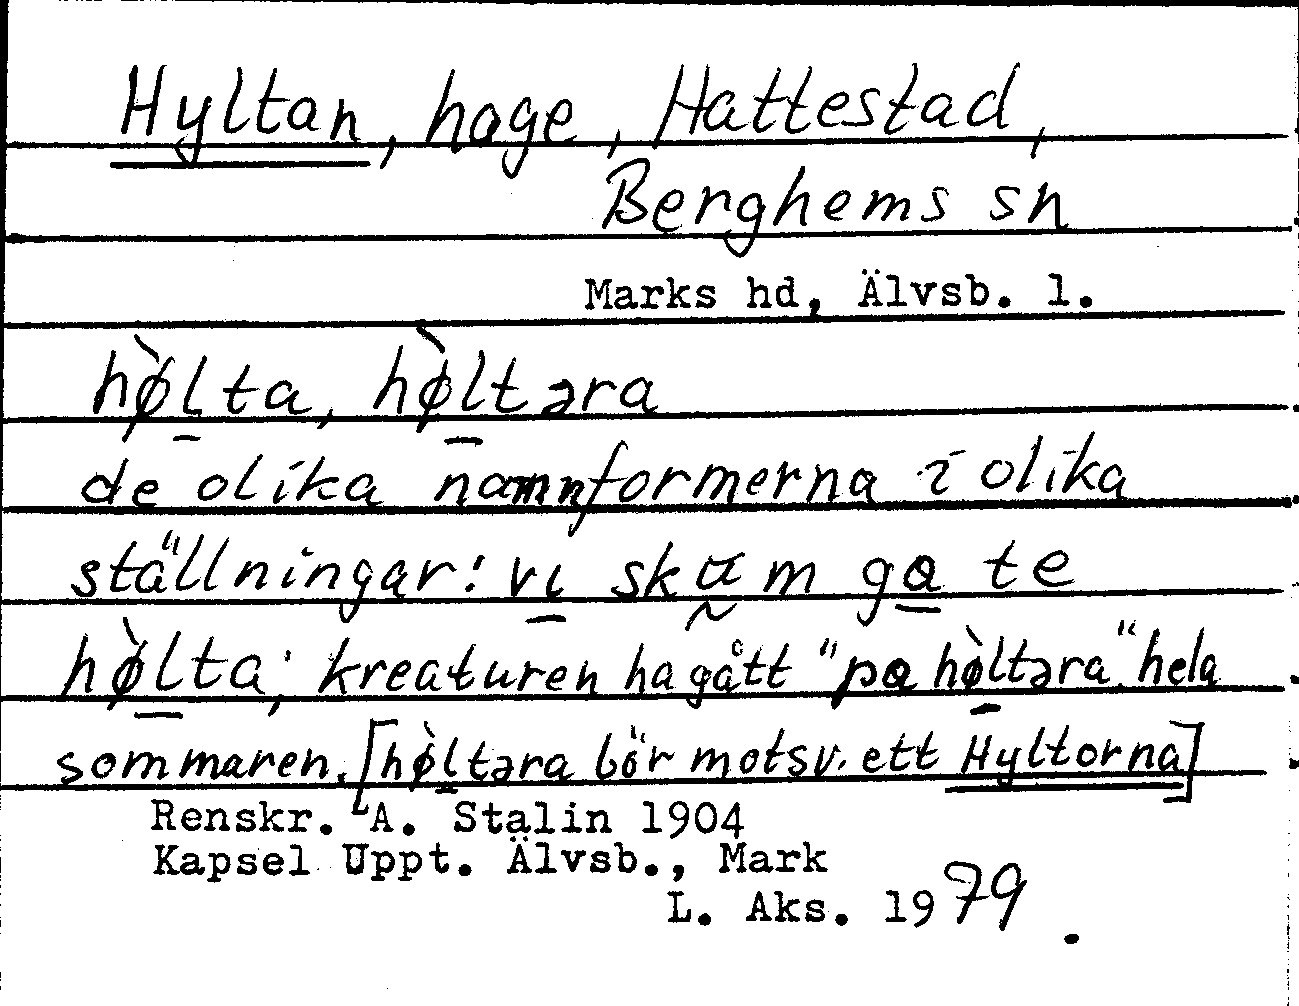 Hyltan, hage, Hattestad,
Berghems sn
Marks hd, Älvsb. l.
hø̀lta, hø̀ltəra
de olika namnformerna i olika
ställningar: vi skɯm ga te
hø̀lta; kreaturen ha gått "pa hø̀ltəra" hela
sommaren. [hø̀ltəra bör motsv. ett Hyltorna]
Renskr. A. Stalin 1904
Kapsel Uppt. Älvsb., Mark
L. Aks. 1979.